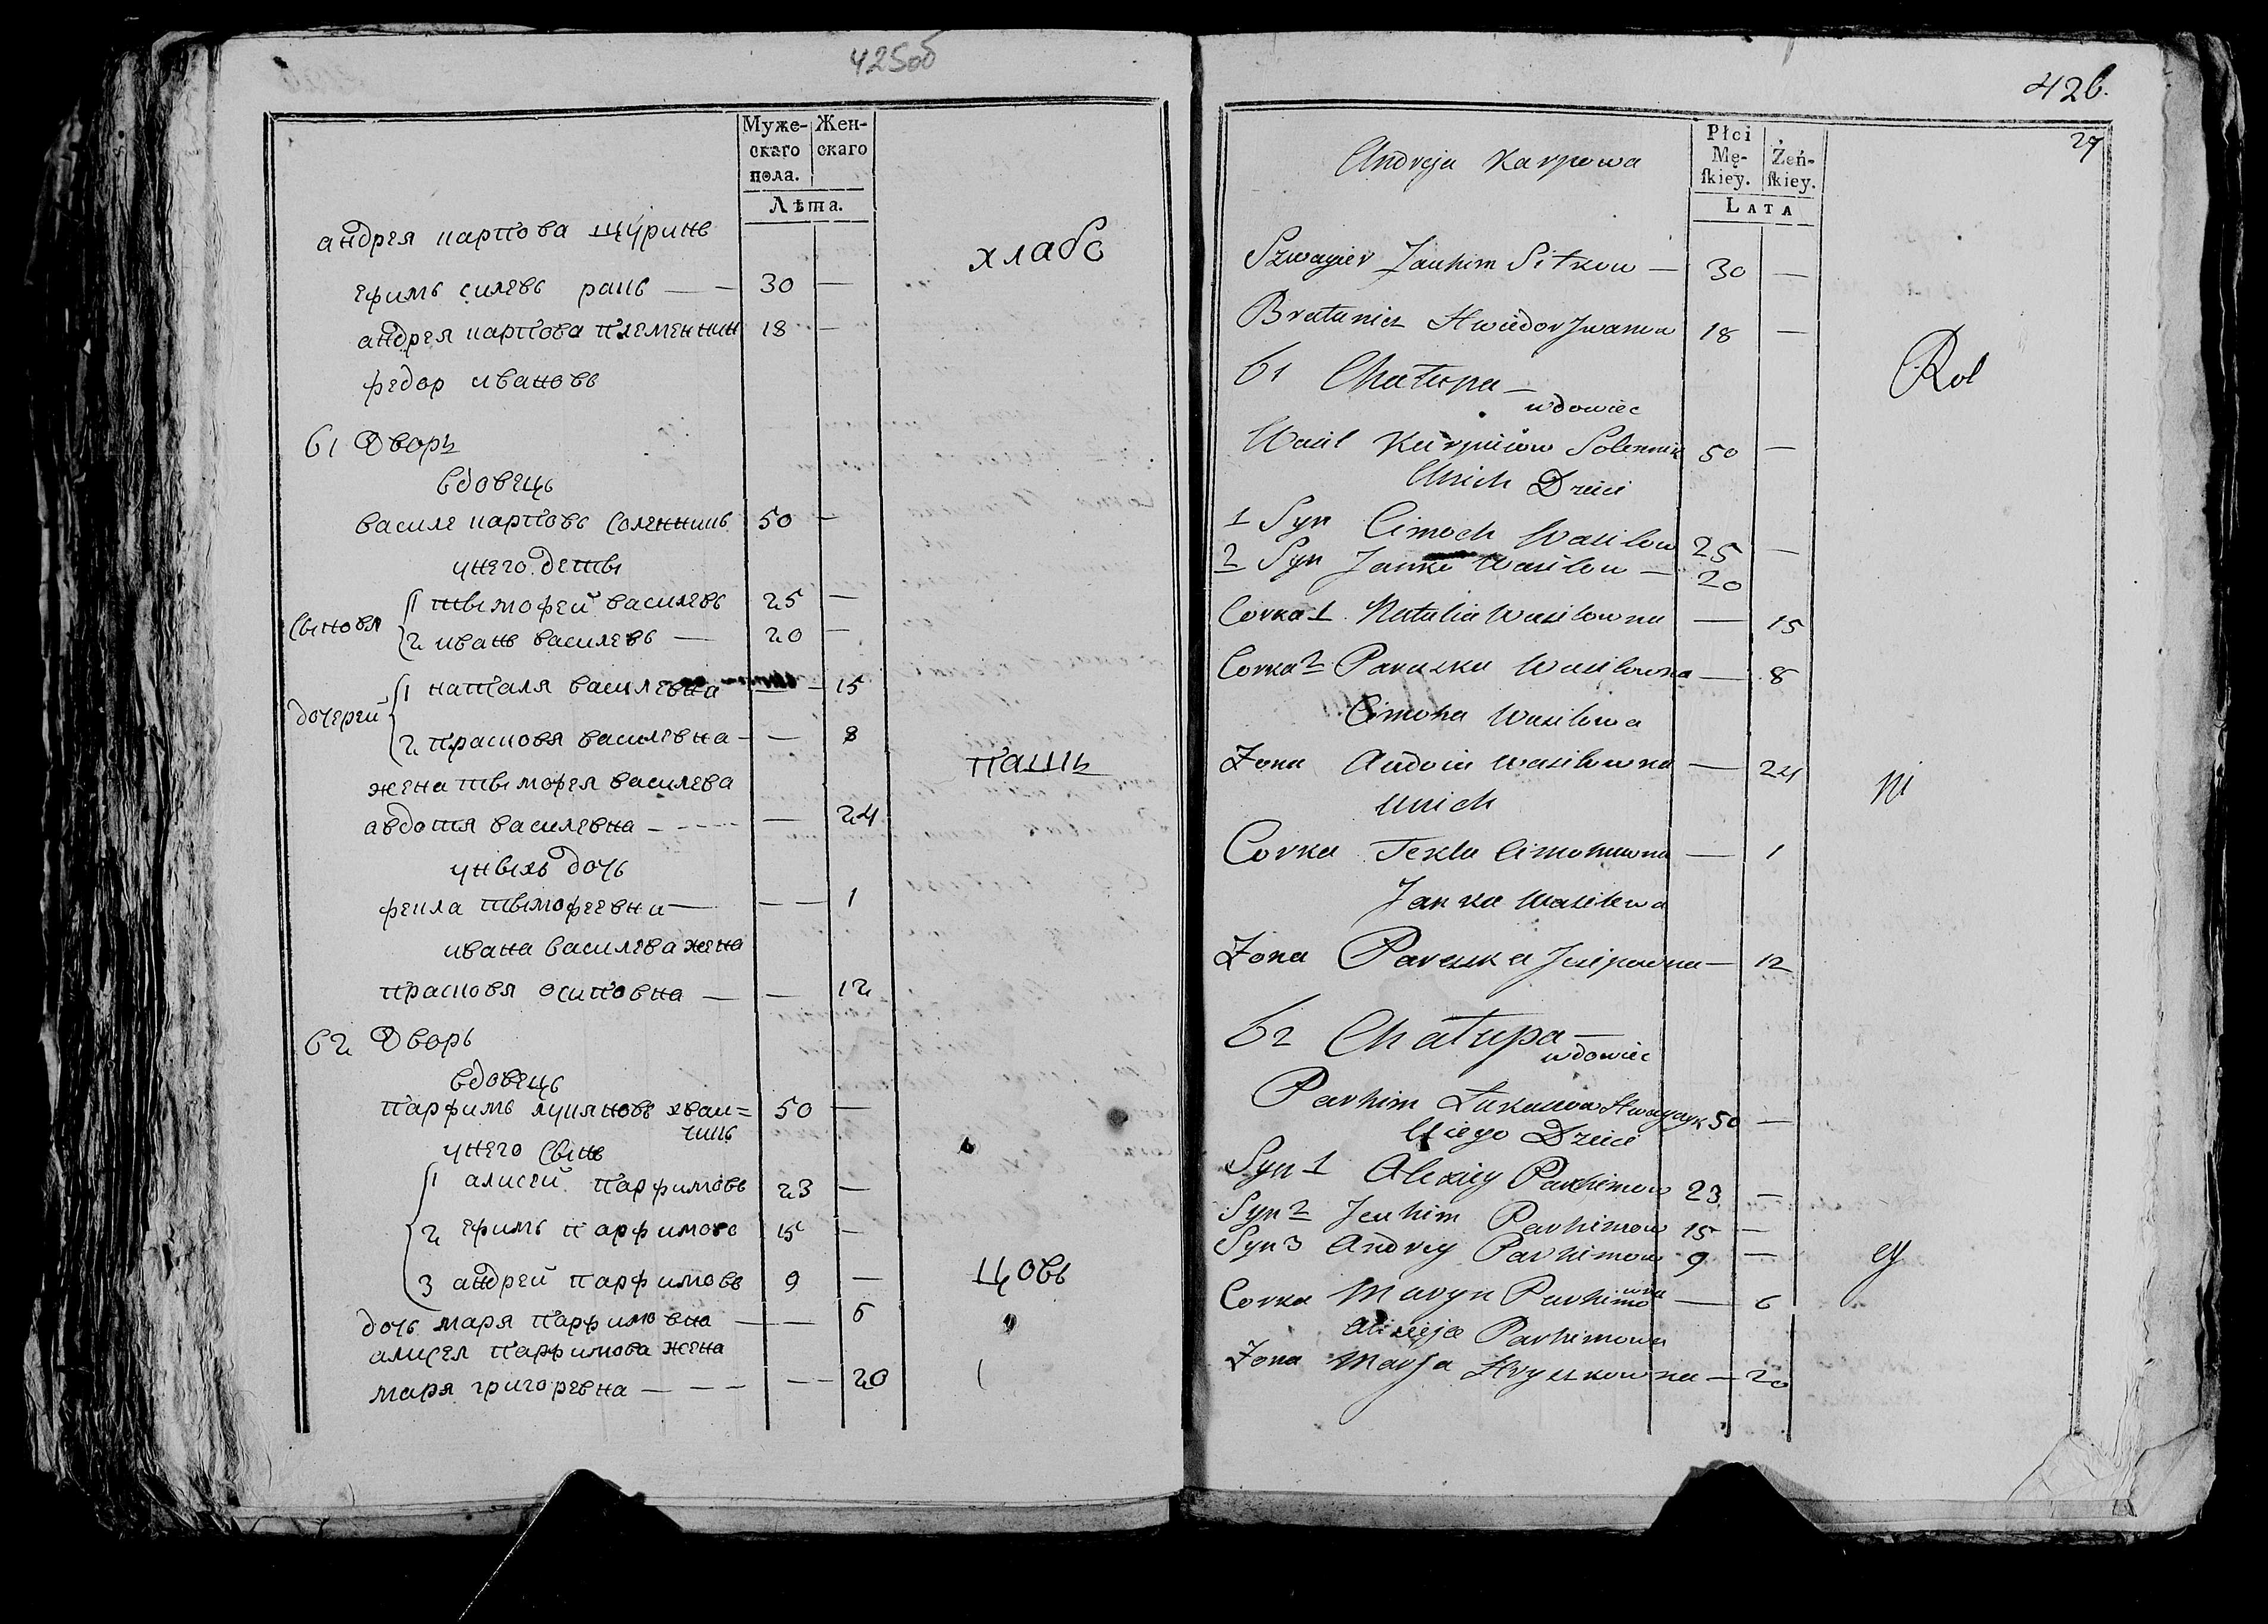 425об
Муже-
скаго
пола.
Жен-
скаго
Лѣта.
андрея карпова щуринъ
ефимъ силевъ ракъ — — 30 —
андрея карпова племенник 18 —
федор ивановъ
хлабо
61 Дворъ
вдовецъ
василе карповъ соленникъ 50 —
унего дѣты
сыновя
1 тымофей василевъ 25 —
2 иванъ василевъ — 20 —
дочерей
1 наталя василевна — 15
2 прасковя василевна — — 8
пашъ
жена тымофея василева
авдотя василевна — — 24
уныхъ дочь
фекла тымофеевна — — — 1
ивана василева жена
прасковя осиповна — — 12
62 Дворъ
вдовецъ
парфимъ лукяновъ хваи= 50 —
чикъ
унего сынъ
1 алисей парфимовъ 23 —
2 ефимъ парфимовъ 15 —
3 андрей парфимовъ 9 —
цовъ
дочь маря парфимовна — — 6
алисея парфимова жена
маря григоревна — — — — 20
426.
27
Płci
Mę-
skiey.
Żeń-
skiey.
Lata
Andreja Karpowa
Szwagier Jauhim Sitkow — 30 —
Bratanicz Hwiedor Iwanow 18 —
61 Chałupa —
wdowiec
Rol
Wasil Karpiow Solennik 50 —
Unich Dzieci
1 Syn Cimoch Wasilow 25 —
2 Syn Janka Wasilow — 20
Corka 1 Natalia Wasilowna — 15
Corka 2 Paraska Wasilowna — 8
Cimoha Wasilowa
Żona Audocia Wasilowna — 24
ni
Unich
Corka Tekla Cimohowna — 1
Janka Wasilewa
Żona Paraska Jusipowna — 12
62 Chałupa —
wdowiec
Parhim Łukaszow 50 —
Uiego Dzieci
Syn 1 Alexiey Parhimow 23 —
Syn 2 Jeuhim Parhimow 15 —
Syn 3 Andrey Parhimow 9 —
cy
Corka Maryn Parhimowna — 6
Alixieja Parhimowa
Żona Marja Hryszkowna — 20